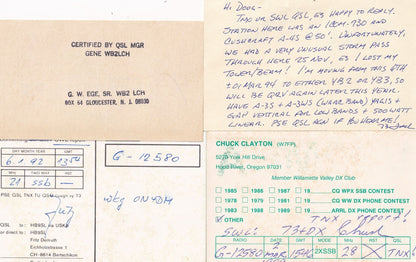 CERTIFIED BY QSL MGR
GENE WB2LCH
G. W. EGE, SR. WB2 LCH
BOX 64 GLOUCESTER, N. J. 08030
Hi Doug -
TNX UR SWL QSL, ES HAPPY TO REPLY.
STATION HERE WAS AN ICOM-730 AND
CUSHCRAFT A-4S @ 50'. UNFORTUNATELY,
WE HAD A VERY UNUSUAL STORM PASS
THROUGH HERE 25 NOV, ES I LOST MY
TOWER/BEAM! I'M MOVING FROM THIS QTH
01 MAR 94 TO EITHER YB2 OR YB3, SO
WILL BE QRV AGAIN LATER THIS YEAR.
HAVE A-3S + A-3WS (WARC BAND) YAGIS +
GAP VERTICAL FOR LOWBANDS + 500 WATT
LINEAR. PSE QSL AGN IF YOU HEAR ME!
DAY MONTH YEAR
6.1.92
13
MHz
21 SSB
PSE QSL TNX
73
QSL to HB9SL via USKA
or direct to:
Fritz Demuth
Eichholzstrasse 1
CH-8614 Bertschikon
G-12580
CHUCK CLAYTON (W7FP)
York Hill Drive
Hood River, Oregon 97031
Member Willamette Valley DX Club
1985 1986 1987 19 CQ WPX SSB CONTEST
1988 1989 1990 19 CQ WW DX PHONE CONTEST
1991 1992 1993 19 ARRL DX PHONE CONTEST
OTHER TNX report!
SWL: 73 + DX Chuck
RADIO DATE MHz RST QSL
G-12580 MAR 2XSSB 28 X TNX